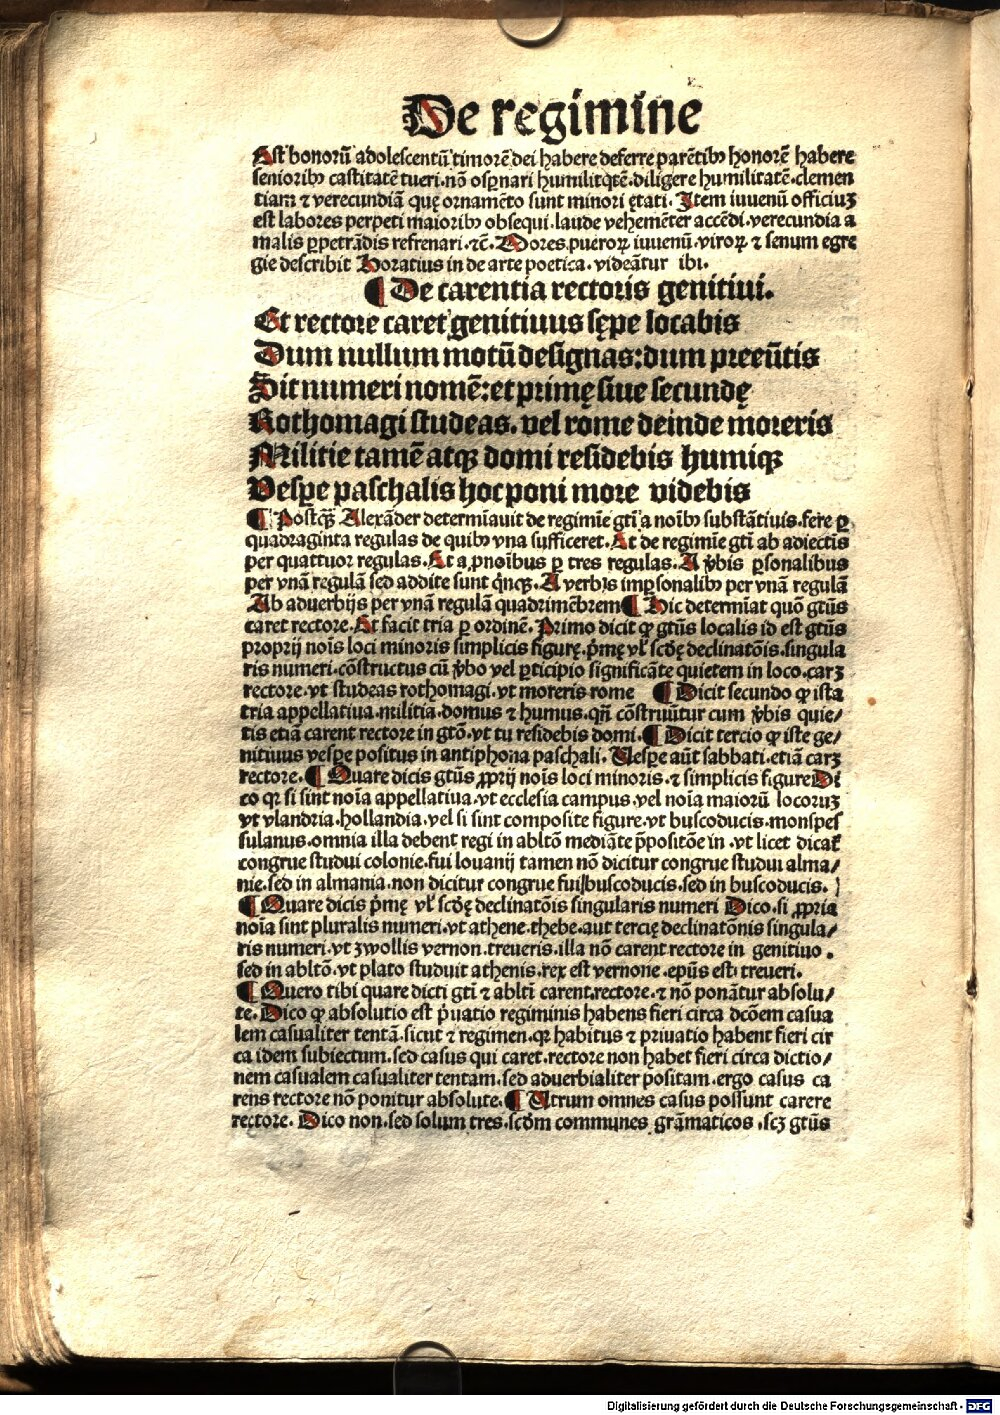 De regimine
Est honorū adolescentū timorē dei habere deferre parētibꝰ honorē habere
senioribꝰ castitatē tueri. nō aspnari humilitatē. diligere humilitatē. clemen
tiam ⁊ verecundiā quę ornamēto sunt minori ętati. Item iuuenū officiuꝫ
est labores perpeti maioribꝰ obsequi. laude vehemēter accēdi. verecundia a
malis ꝑpetrādis refrenari. ⁊c̄. Mores. pueroꝝ iuuenū. viroꝝ ⁊ senum egre
gie describit Horatius in de arte poetica. videātur ibi.
¶ De carentia rectoris genitiui.
Et rectore caret genitiuus sępe locabis
Dum nullum motū designas: dum preeūtis
Sit numeri nomē: et primę siue secundę
Rothomagi studeas. vel rome deinde moreris
Militie tamē atqꝫ domi residebis humiqꝫ
Vespe paschalis hoc poni more videbis
¶ Postqꝫ̄ Alexāder determīauit de regimīe gtī a noībꝰ substātiuis. fere ꝑ
quadraginta regulas de quibꝰ vna sufficeret. Et de regimīe gtī ab adiectīs
per quattuor regulas. Et a ꝓnoībus ꝑ tres regulas. A v̄bis ꝑsonalibus
per vnā regulā sed addite sunt q̄ncqꝫ. A verbis imꝑsonalibꝰ per vnā regulā
Ab aduerbijs per vnā regulā quadrimēbrem ¶ Hic determīat quō gtūs
caret rectore. Et facit tria ꝑ ordinē. Primo dicit ꝙ gtūs localis id est gtūs
proprij noīs loci minoris simplicis figurę. p̄mę vl̓ scd̄ę declinatōis. singula
ris numeri. cōstructus cū v̄bo vel ꝑticipio significāte quietem in loco. carꝫ
rectore. vt studeas rothomagi. vt moreris rome ¶ Dicit secundo ꝙ ista
tria appellatiua. militia. domus ⁊ humus. qn̄ cōstruūtur cum v̄bis quie/
tis etiā carent rectore in gtō. vt tu residebis domi. ¶ Dicit tercio ꝙ iste ge/
nitiuus vespe positus in antiphona paschali. Vespe aūt sabbati. etiā carꝫ
rectore. ¶ Quare dicis gtūs ꝓprij noīs loci minoris. ⁊ simplicis figure Di
co qꝛ si sint noīa appellatiua. vt ecclesia campus. vel noīa maiorū locoruꝫ
vt vlandria. hollandia. vel si sint composite figure. vt buscoducis. monspes
sulanus. omnia illa debent regi in abltō mediāte p̄positōe in. vt licet dicat̄
congrue studui colonie. fui louanij tamen nō dicitur congrue studui alma/
nie. sed in almania. non dicitur congrue fui buscoducis. sed in buscoducis.
¶ Quare dicis p̄mę vl̓ scd̄ę declinatōis singularis numeri Dico. si ꝓpria
noīa sint pluralis numeri. vt athene. thebe. aut tercię declinatōnis singula/
ris numeri. vt ʒwollis vernon. treueris. illa nō carent rectore in genitiuo.
sed in abltō. vt plato studuit athenis. rex est vernone. epūs est treueri.
¶ Quero tibi quare dicti gtī ⁊ abltī carent rectore. ⁊ nō ponātur absolu/
te. Dico ꝙ absolutio est p̄uatio regiminis habens fieri circa dcōem casua
lem casualiter tentā. sicut ⁊ regimen. qꝛ habitus ⁊ priuatio habent fieri cir
ca idem subiectum. sed casus qui caret rectore non habet fieri circa dictio/
nem casualem casualiter tentam. sed aduerbialiter positam. ergo casus ca
rens rectore nō ponitur absolute. ¶ Vtrum omnes casus possunt carere
rectore. Dico non. sed solum tres. scd̄m communes grāmaticos. scꝫ gtūs
Digitalisierung gefördert durch die Deutsche Forschungsgemeinschaft - DFG